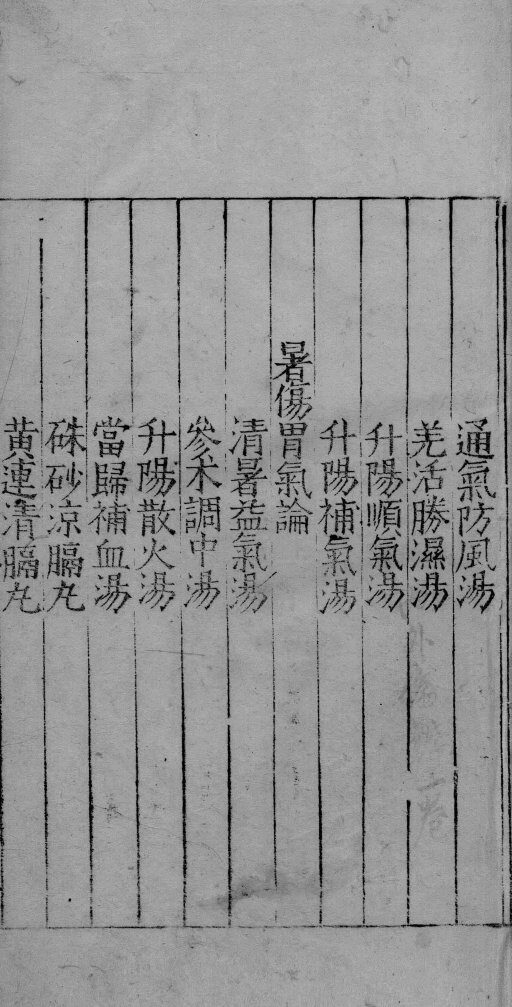 通氣防風湯
羌活勝濕湯
升陽順氣湯
升陽補氣湯
暑傷胃氣論
清暑益氣湯
參朮調中湯
升陽散火湯
當歸補血湯
硃砂涼膈丸
黃連清膈丸